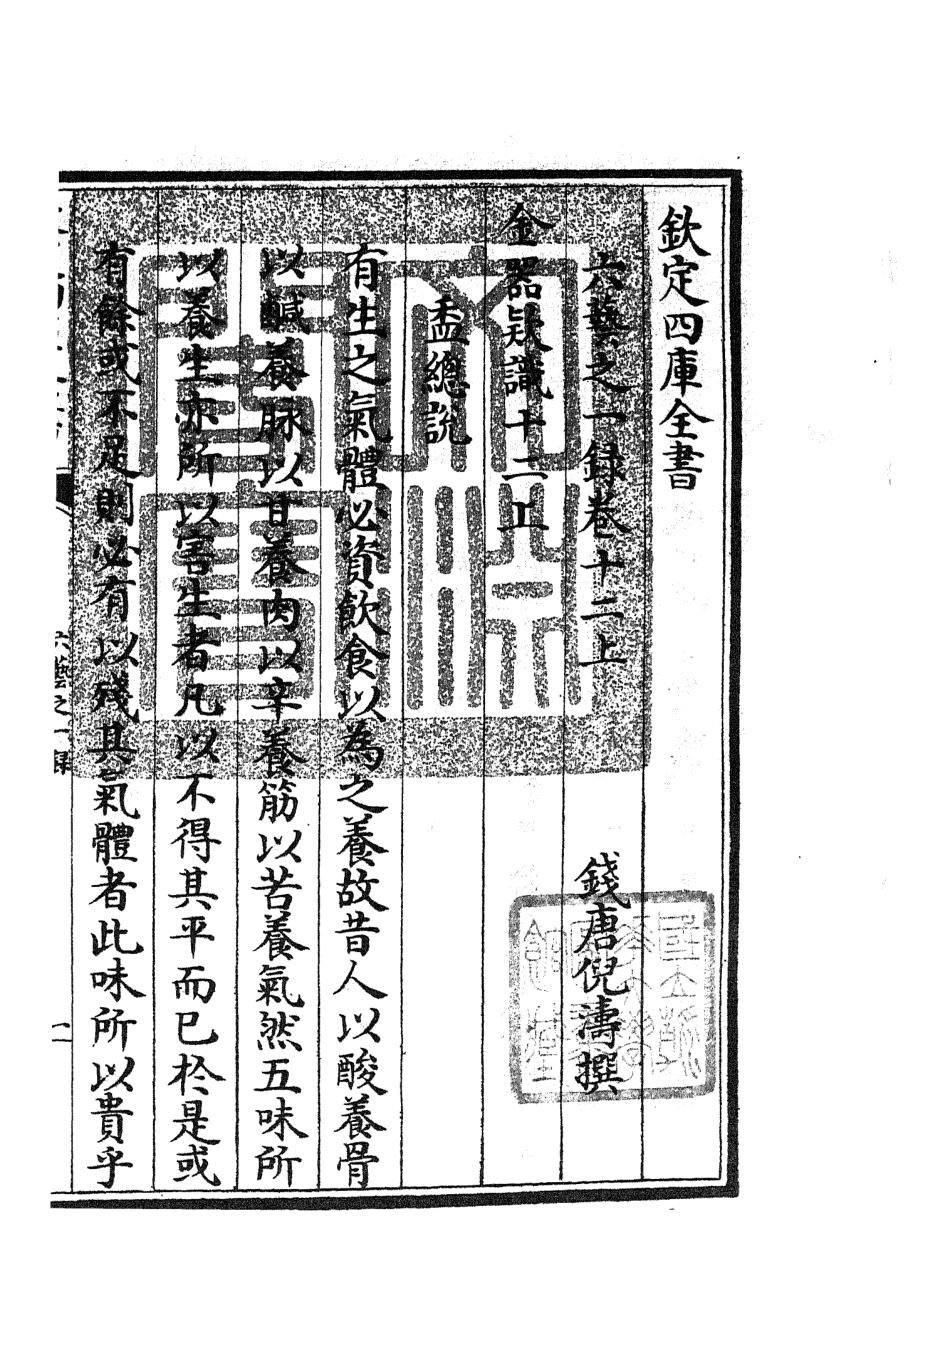 欽定四庫全書
六藝之一録卷十二上
錢唐倪濤撰
金器款識十二上
盉總說
有生之氣體必資飲食以為之養故昔人以酸養骨
以鹹養脉以甘養肉以辛養筋以苦養氣然五味所
以養生亦所以害生者凡以不得其平而已於是或
有餘或不足則必有以殘其氣體者此味所以貴乎
六藝之一録
一